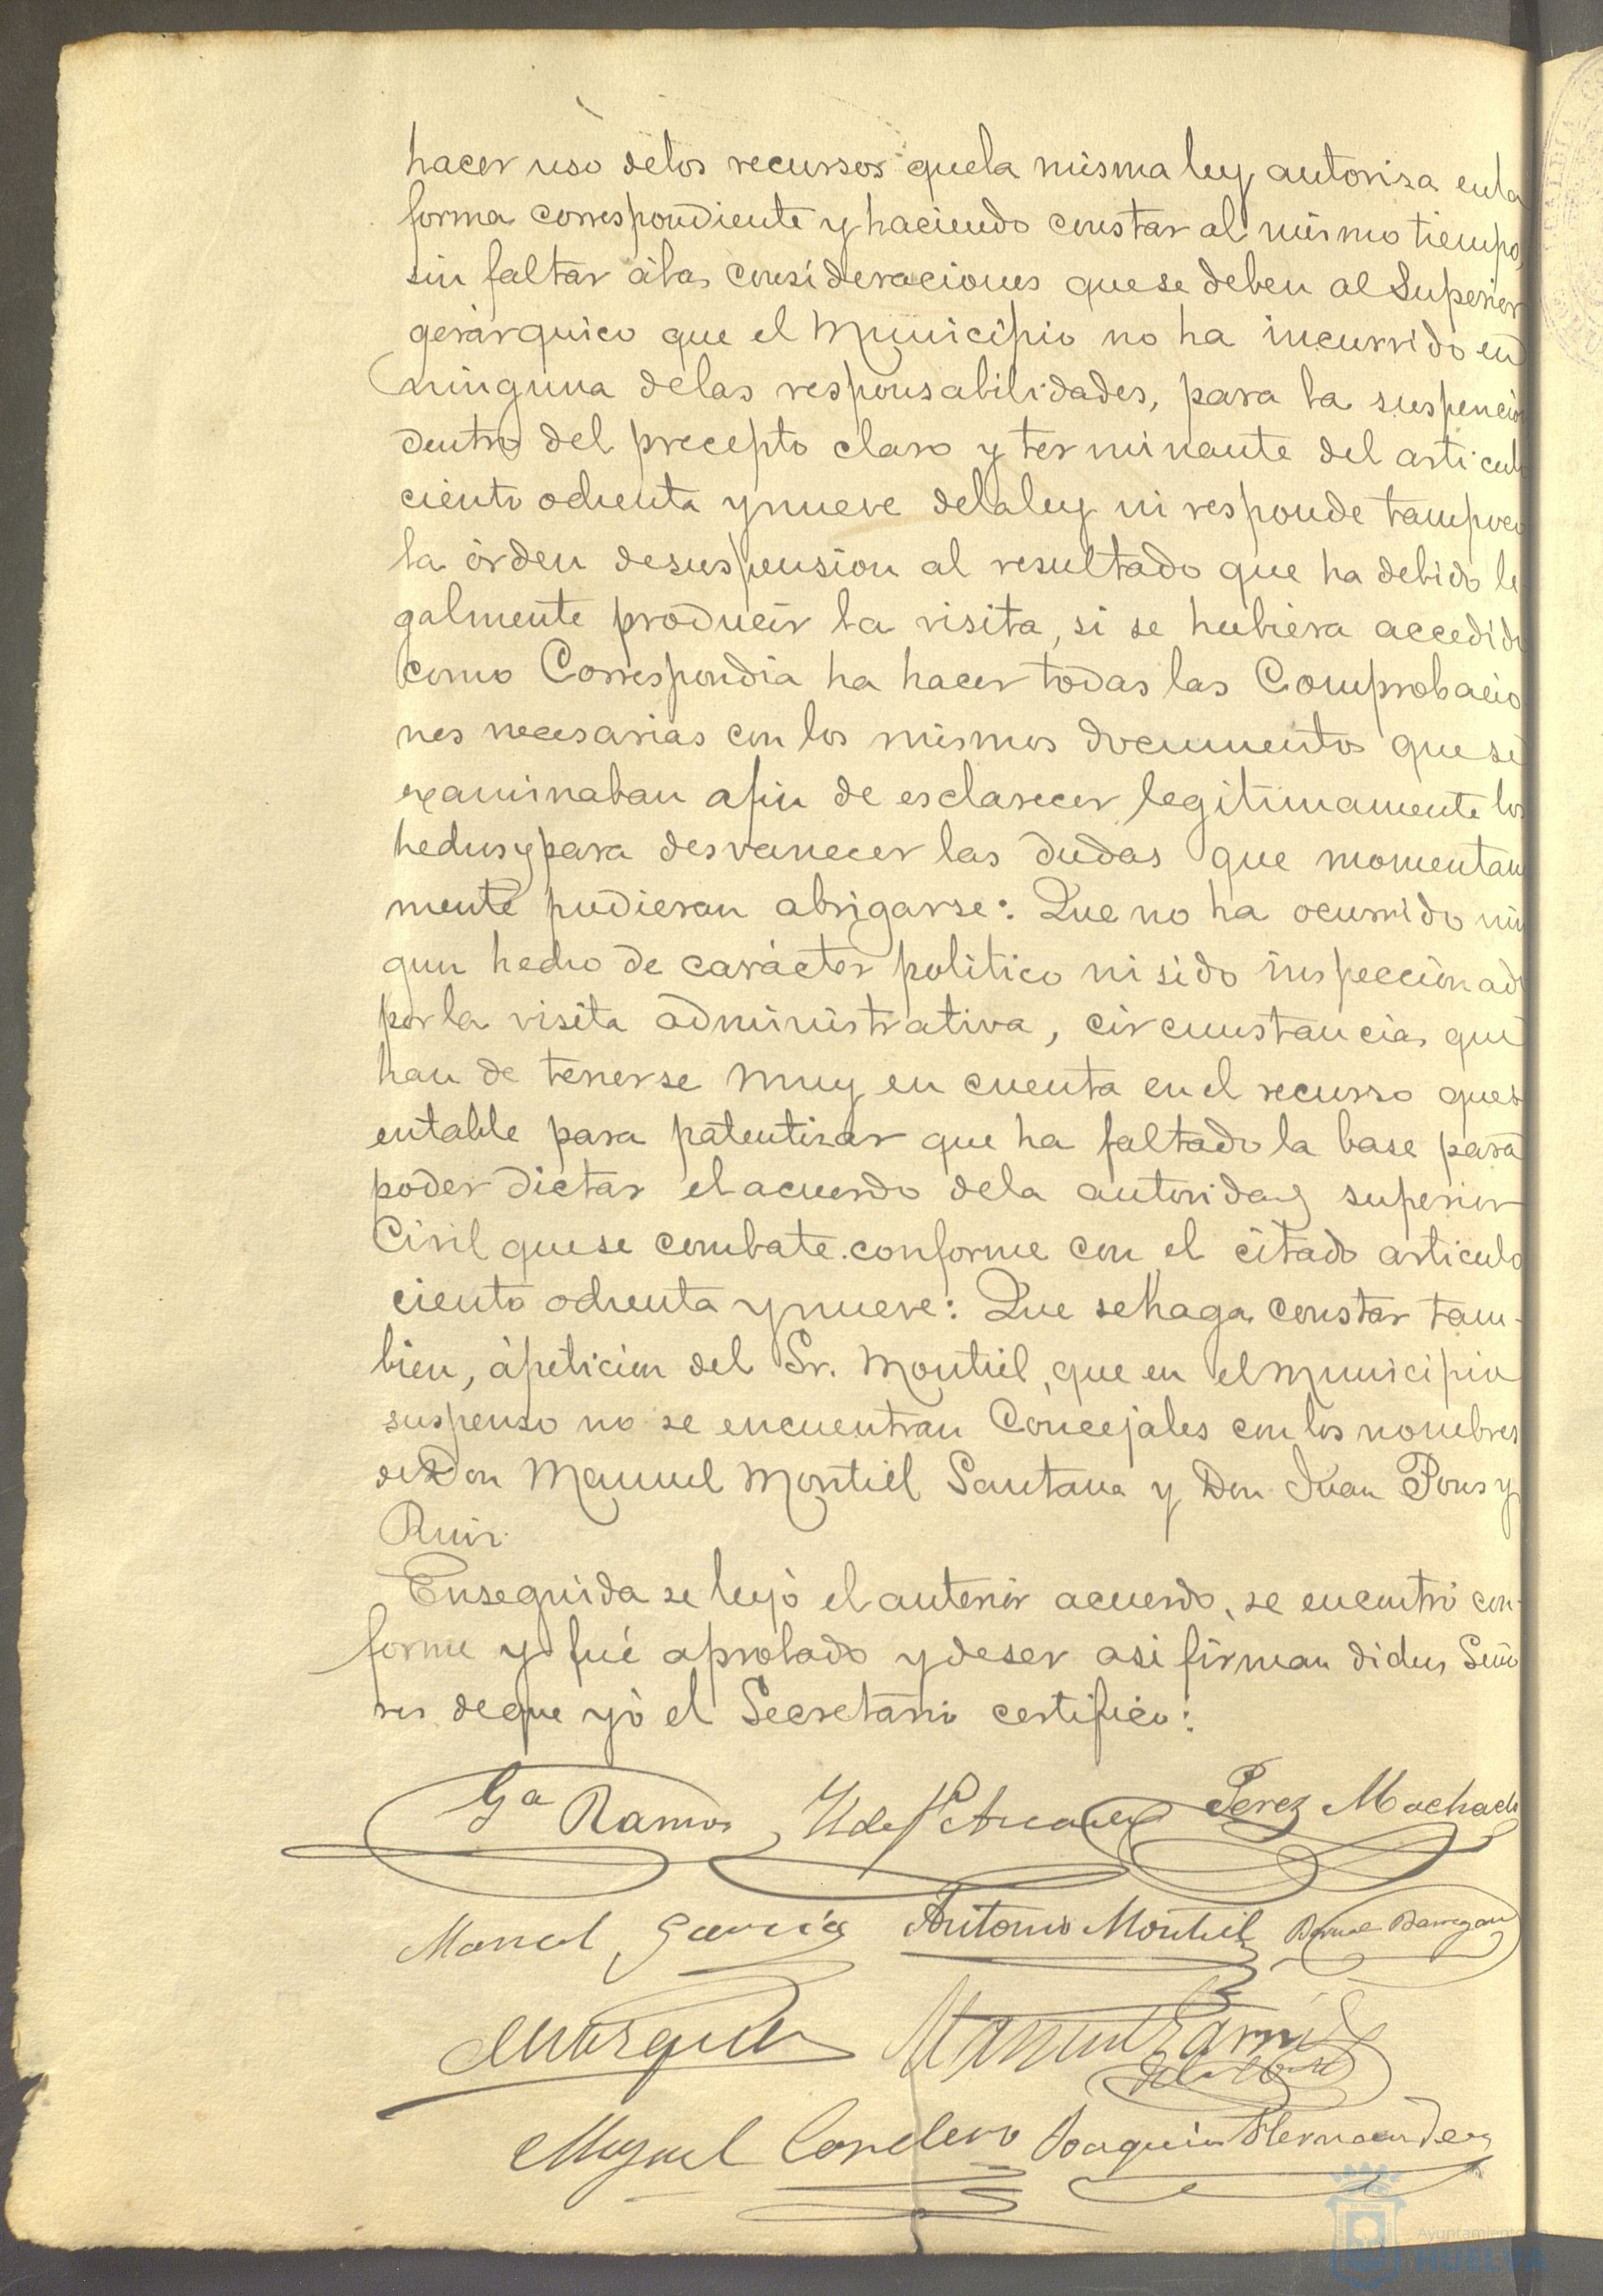 hacer uso delos recursos quela misma ley autoriza enla
forma correspondiente y haciendo constar al mismo tiempo,
sin faltar álas consideraciones quese deben al Superior
gerárquico que el Municipio no ha incurrido en
ninguna delas responsabilidades, para la suspención
dentro del precepto claro y terminante del articulo
ciento ochenta y nueve delaley ni responde tampoco
la órden desuspension al resultado que ha debido le
galmente producir la visita, si se hubiera accedido
como Correspondia ha hacer todas las Comprobacio
nes necesarias con los mismos documentos que se
examinaban afin de esclarecer legitimamente los
hechos y para desvanecer las dudas que momentanea
mente pudieran abrigarse: Que no ha ocurrido nin
gun hecho de carácter politico ni sido inspeccionado
por la visita administrativa, circunstancias que
han de tenerse muy en cuenta en el recurso que se
entable para patentizar que ha faltado la base para
poder dictar el acuerdo dela autoridad superior
Civil quese combate conforme con el citado articulo
ciento ochenta y nueve: Que sehaga constar tam-
bien, ápeticion del Sr. Montiel, que en el municipio
suspenso no se encuentran Concejales con los nombres
de Don Manuel Montiel Santana y Don Juan Pons y
Ruiz.
Enseguida se leyó el anterior acuerdo, se encontró con-
forme y fué aprobado y deser asi firman dichos Seño
res deque yó el Secretario certifico:
Gª Ramos Pérez Machado
Manuel García Antonio Montiel Barragan
Marquez Manuel Garcia
Miguel Cordero Joaquin Hernandez
Ayuntamiento
HUELVA